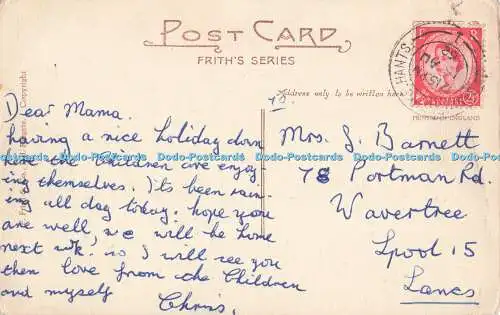 POST CARD
FRITH'S SERIES
Address only to be written here
HANTS
Dear Mama.
having a nice holiday down
here the Children are enjoy
ing themselves. Its been rain-
ing all day today. hope you
are well, we will be home
next wk. so I will see you
then love from the Children
and myself
Chris.
To.
Mrs. J. Barnett
78 Portman Rd.
Wavertree
Lpool 15
Lancs
Dodo-Postcards Dodo-Postcards Dodo-Postcards Dodo-Postcards
Copyright